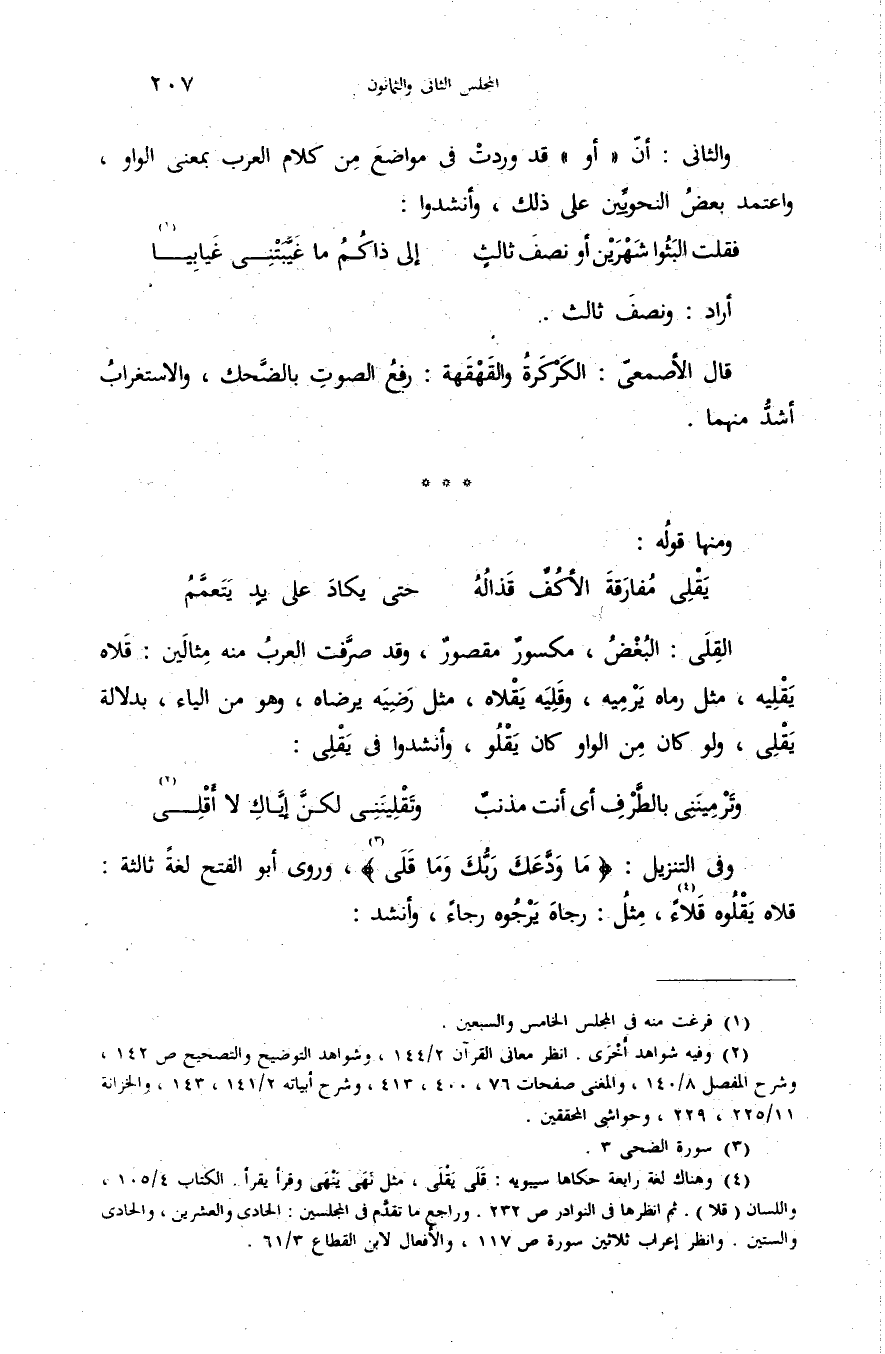 المجلس الثانى والثمانون ٢٠٧
والثانى : أنّ « أو » قد وردتْ فى مواضعَ مِن كلام العرب بمعنى الواو ،
واعتمد بعضُ النحويِّين على ذلك ، وأنشدوا :
فقلت البَثُوا شَهْرَيْن أو نصفَ ثالثٍ إلى ذاكُمُ ما غَيَّبَتْنِــى غَيابِيــا (١)
أراد : ونصفَ ثالث .
قال الأصمعىّ : الكَرْكَرةُ والقَهْقَهة : رفعُ الصوتِ بالضَّحك ، والاستغرابُ
أشدُّ منهما .
* * *
ومنها قولُه :
يَقْلِى مُفارَقةَ الأكُفِّ قَذالُهُ حتى يكادَ على يدٍ يَتَعمَّمُ
القِلَى : البُغْضُ ، مكسورٌ مقصورٌ ، وقد صرَّفت العربُ منه مِثالَين : قَلاه
يَقْلِيه ، مثل رماه يَرْمِيه ، وقَلِيَه يَقْلاه ، مثل رَضِيَه يرضاه ، وهو من الياء ، بدلالة
يَقْلِى ، ولو كان مِن الواو كان يَقْلُو ، وأنشدوا فى يَقْلِى :
وتَرْمِينَنِى بالطَّرْفِ أى أنت مذنبٌ وتَقْلِينَنِــى لكــنَّ إيَّــاكِ لا أَقْلِــــى (٢)
وفى التنزيل : ﴿ مَا وَدَّعَكَ رَبُّكَ وَمَا قَلَى ﴾ (٣) ، وروى أبو الفتح لغةً ثالثة :
قلاه يَقْلُوه قَلاءً (٤) ، مِثلُ : رجاهَ يَرْجُوه رجاءً ، وأنشد :
(١) فرغت منه فى المجلس الخامس والسبعين .
(٢) وفيه شواهد أُخْرَى . انظر معانى القرآن ١٤٤/٢ ، وشواهد التوضيح والتصحيح ص ١٤٢ ،
وشرح المفصل ١٤٠/٨ ، والمغنى صفحات ٧٦ ، ٤٠٠ ، ٤١٣ ، وشرح أبياته ١٤١/٢ ، ١٤٣ ، والخزانة
٢٢٥/١١ ، ٢٢٩ ، وحواشى المحققين .
(٣) سورة الضحى ٣ .
(٤) وهناك لغة رابعة حكاها سيبويه : قَلَى يَقْلَى ، مثل نَهَى يَنْهَى وقرأ يقرأ . الكتاب ١٠٥/٤ ،
واللسان ( قلا ) . ثم انظرها فى النوادر ص ٢٣٢ . وراجع ما تقدَّم فى المجلسين : الحادى والعشرين ، والحادى
والستين . وانظر إعراب ثلاثين سورة ص ١١٧ ، والأفعال لابن القطاع ٦١/٣ .